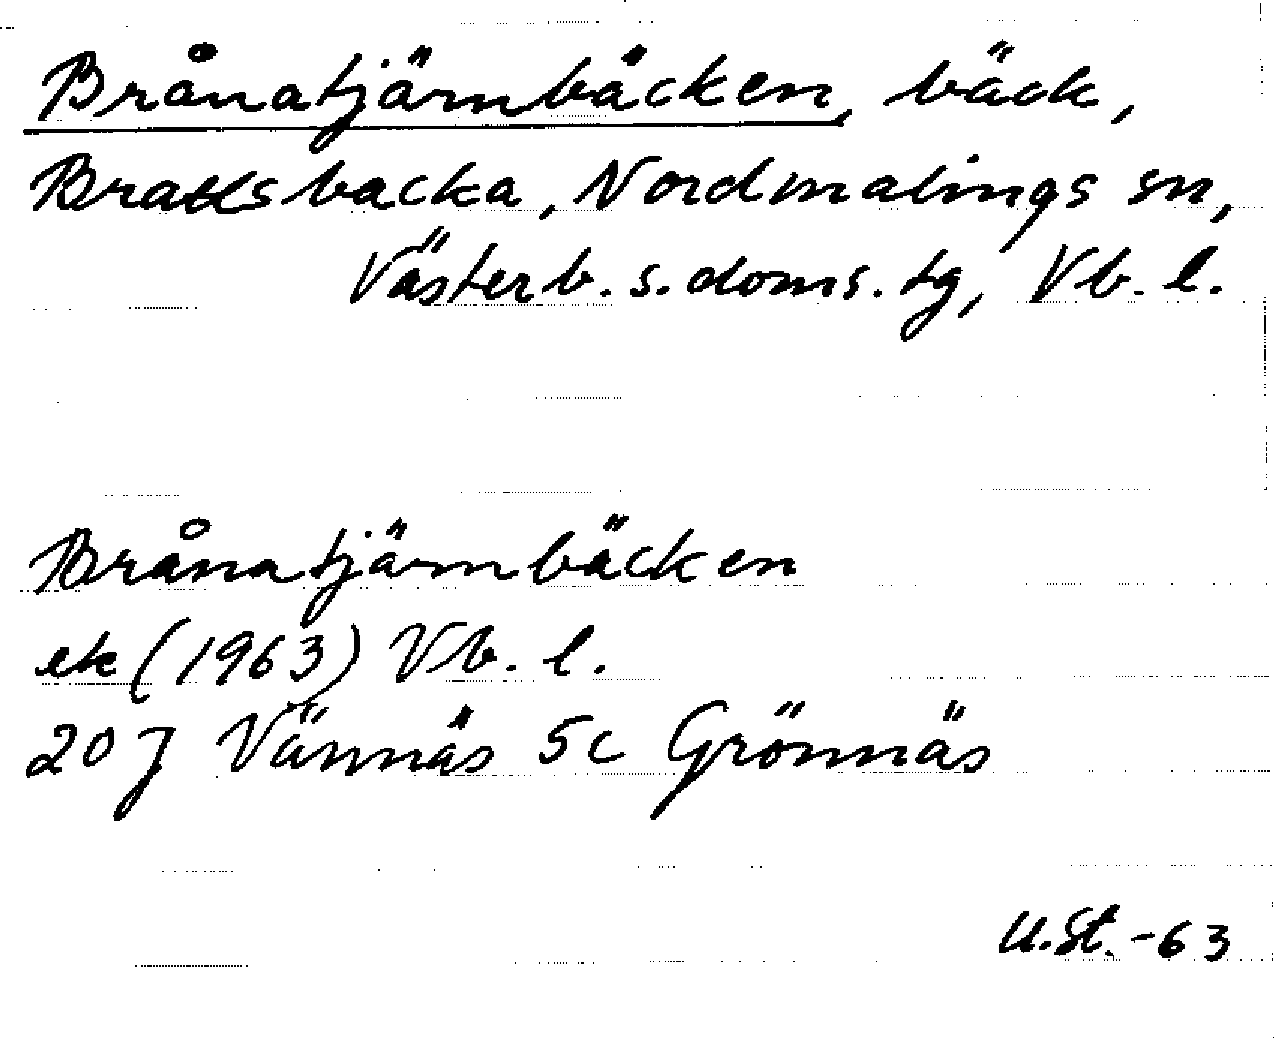 Brånatjärnbäcken, bäck,
Brattsbacka, Nordmalings sn,
Västerb. s. doms. tg, Vb. l.
Brånatjärnbäcken
ek (1963) Vb. l.
20 J Vännäs 5c Grönnäs
U.St.-63